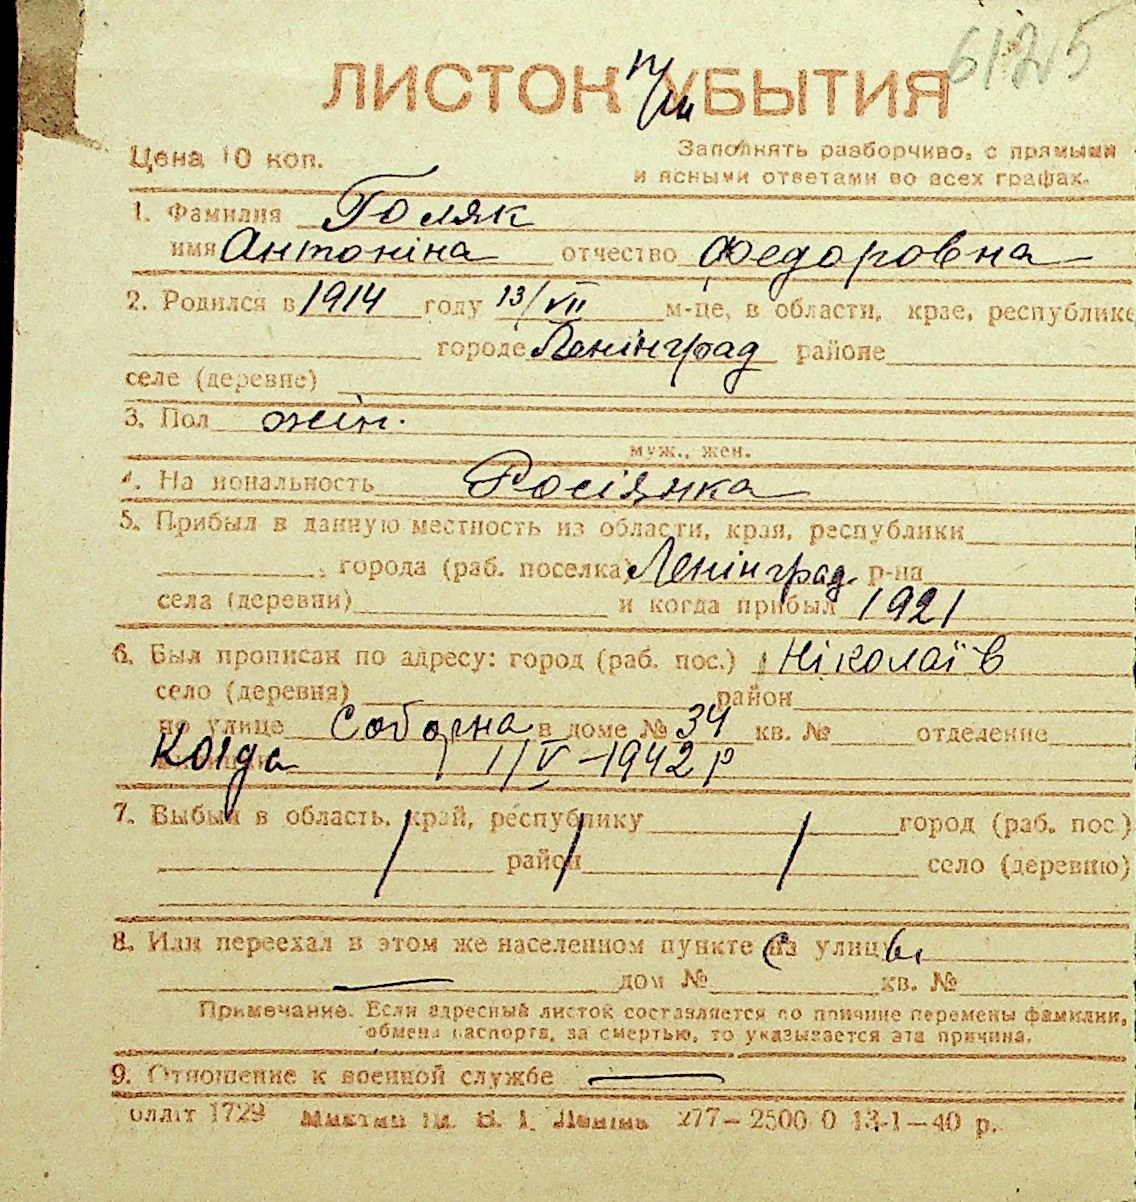 6125
ЛИСТОК УБЫТИЯ
Цена 10 коп.
Заполнять разборчиво, с прямыми
и ясными ответами во всех графах.
1. Фамилия Голяк
имя Антоніна отчество Федоровна
2. Родился в 1914 году 13/VII м-це, в области, крае, республике
городе Ленінград районе
селе (деревне)
3. Пол жін.
муж., жен.
4. На иональность Росіянка
5. Прибыл в данную местность из области, края, республики
города (раб. поселка) Ленінград р-на
села (деревни) и когда прибыл 1921
6. Был прописан по адресу: город (раб. пос.) Ніколаїв
село (деревня) район
по улице Соборна в доме № 34 кв. № отделение
Когда 1/V-1942 р
7. Выбыл в область, край, республику город (раб. пос.)
район село (деревню)
8. Или переехал в этом же населенном пункте с улицы
дом № кв. №
Примечание. Если адресный листок составляется по причине перемены фамилии,
обмена паспорта, за смертью, то указывается эта причина.
9. Отношение к военной службе
оллїт 1729 ім. В. І. Леніна 277–2500 0 13-1–40 р.